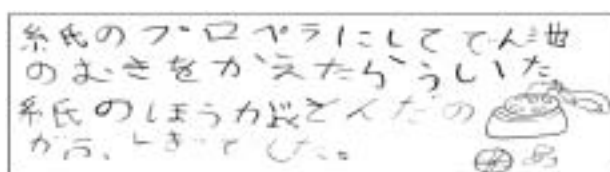 紙のプロペラにしてでん池
のむきをかえたらういた
紙のほうがとんだの
がふしぎでした。